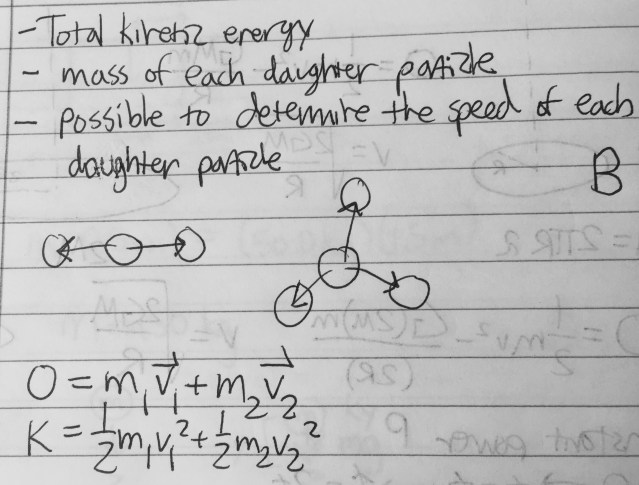 - Total kinetic energy
- mass of each daughter particle
- possible to determine the speed of each
daughter particle
B
O = m₁v⃗₁ + m₂v⃗₂
K = ½m₁v₁² + ½m₂v₂²